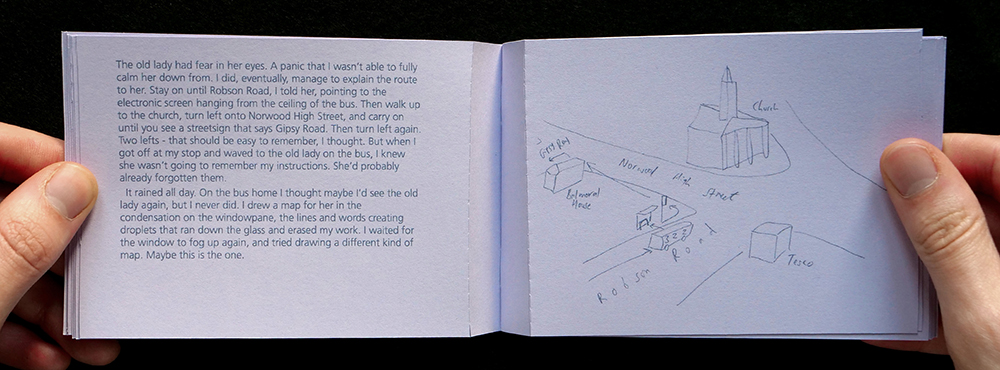 The old lady had fear in her eyes. A panic that I wasn't able to fully
calm her down from. I did, eventually, manage to explain the route
to her. Stay on until Robson Road, I told her, pointing to the
electronic screen hanging from the ceiling of the bus. Then walk up
to the church, turn left onto Norwood High Street, and carry on
until you see a streetsign that says Gipsy Road. Then turn left again.
Two lefts - that should be easy to remember, I thought. But when I
got off at my stop and waved to the old lady on the bus, I knew
she wasn't going to remember my instructions. She'd probably
already forgotten them.
It rained all day. On the bus home I thought maybe I'd see the old
lady again, but I never did. I drew a map for her in the
condensation on the windowpane, the lines and words creating
droplets that ran down the glass and erased my work. I waited for
the window to fog up again, and tried drawing a different kind of
map. Maybe this is the one.
Church
Norwood High Street
Balmoral
House
322
Robson Road
Tesco